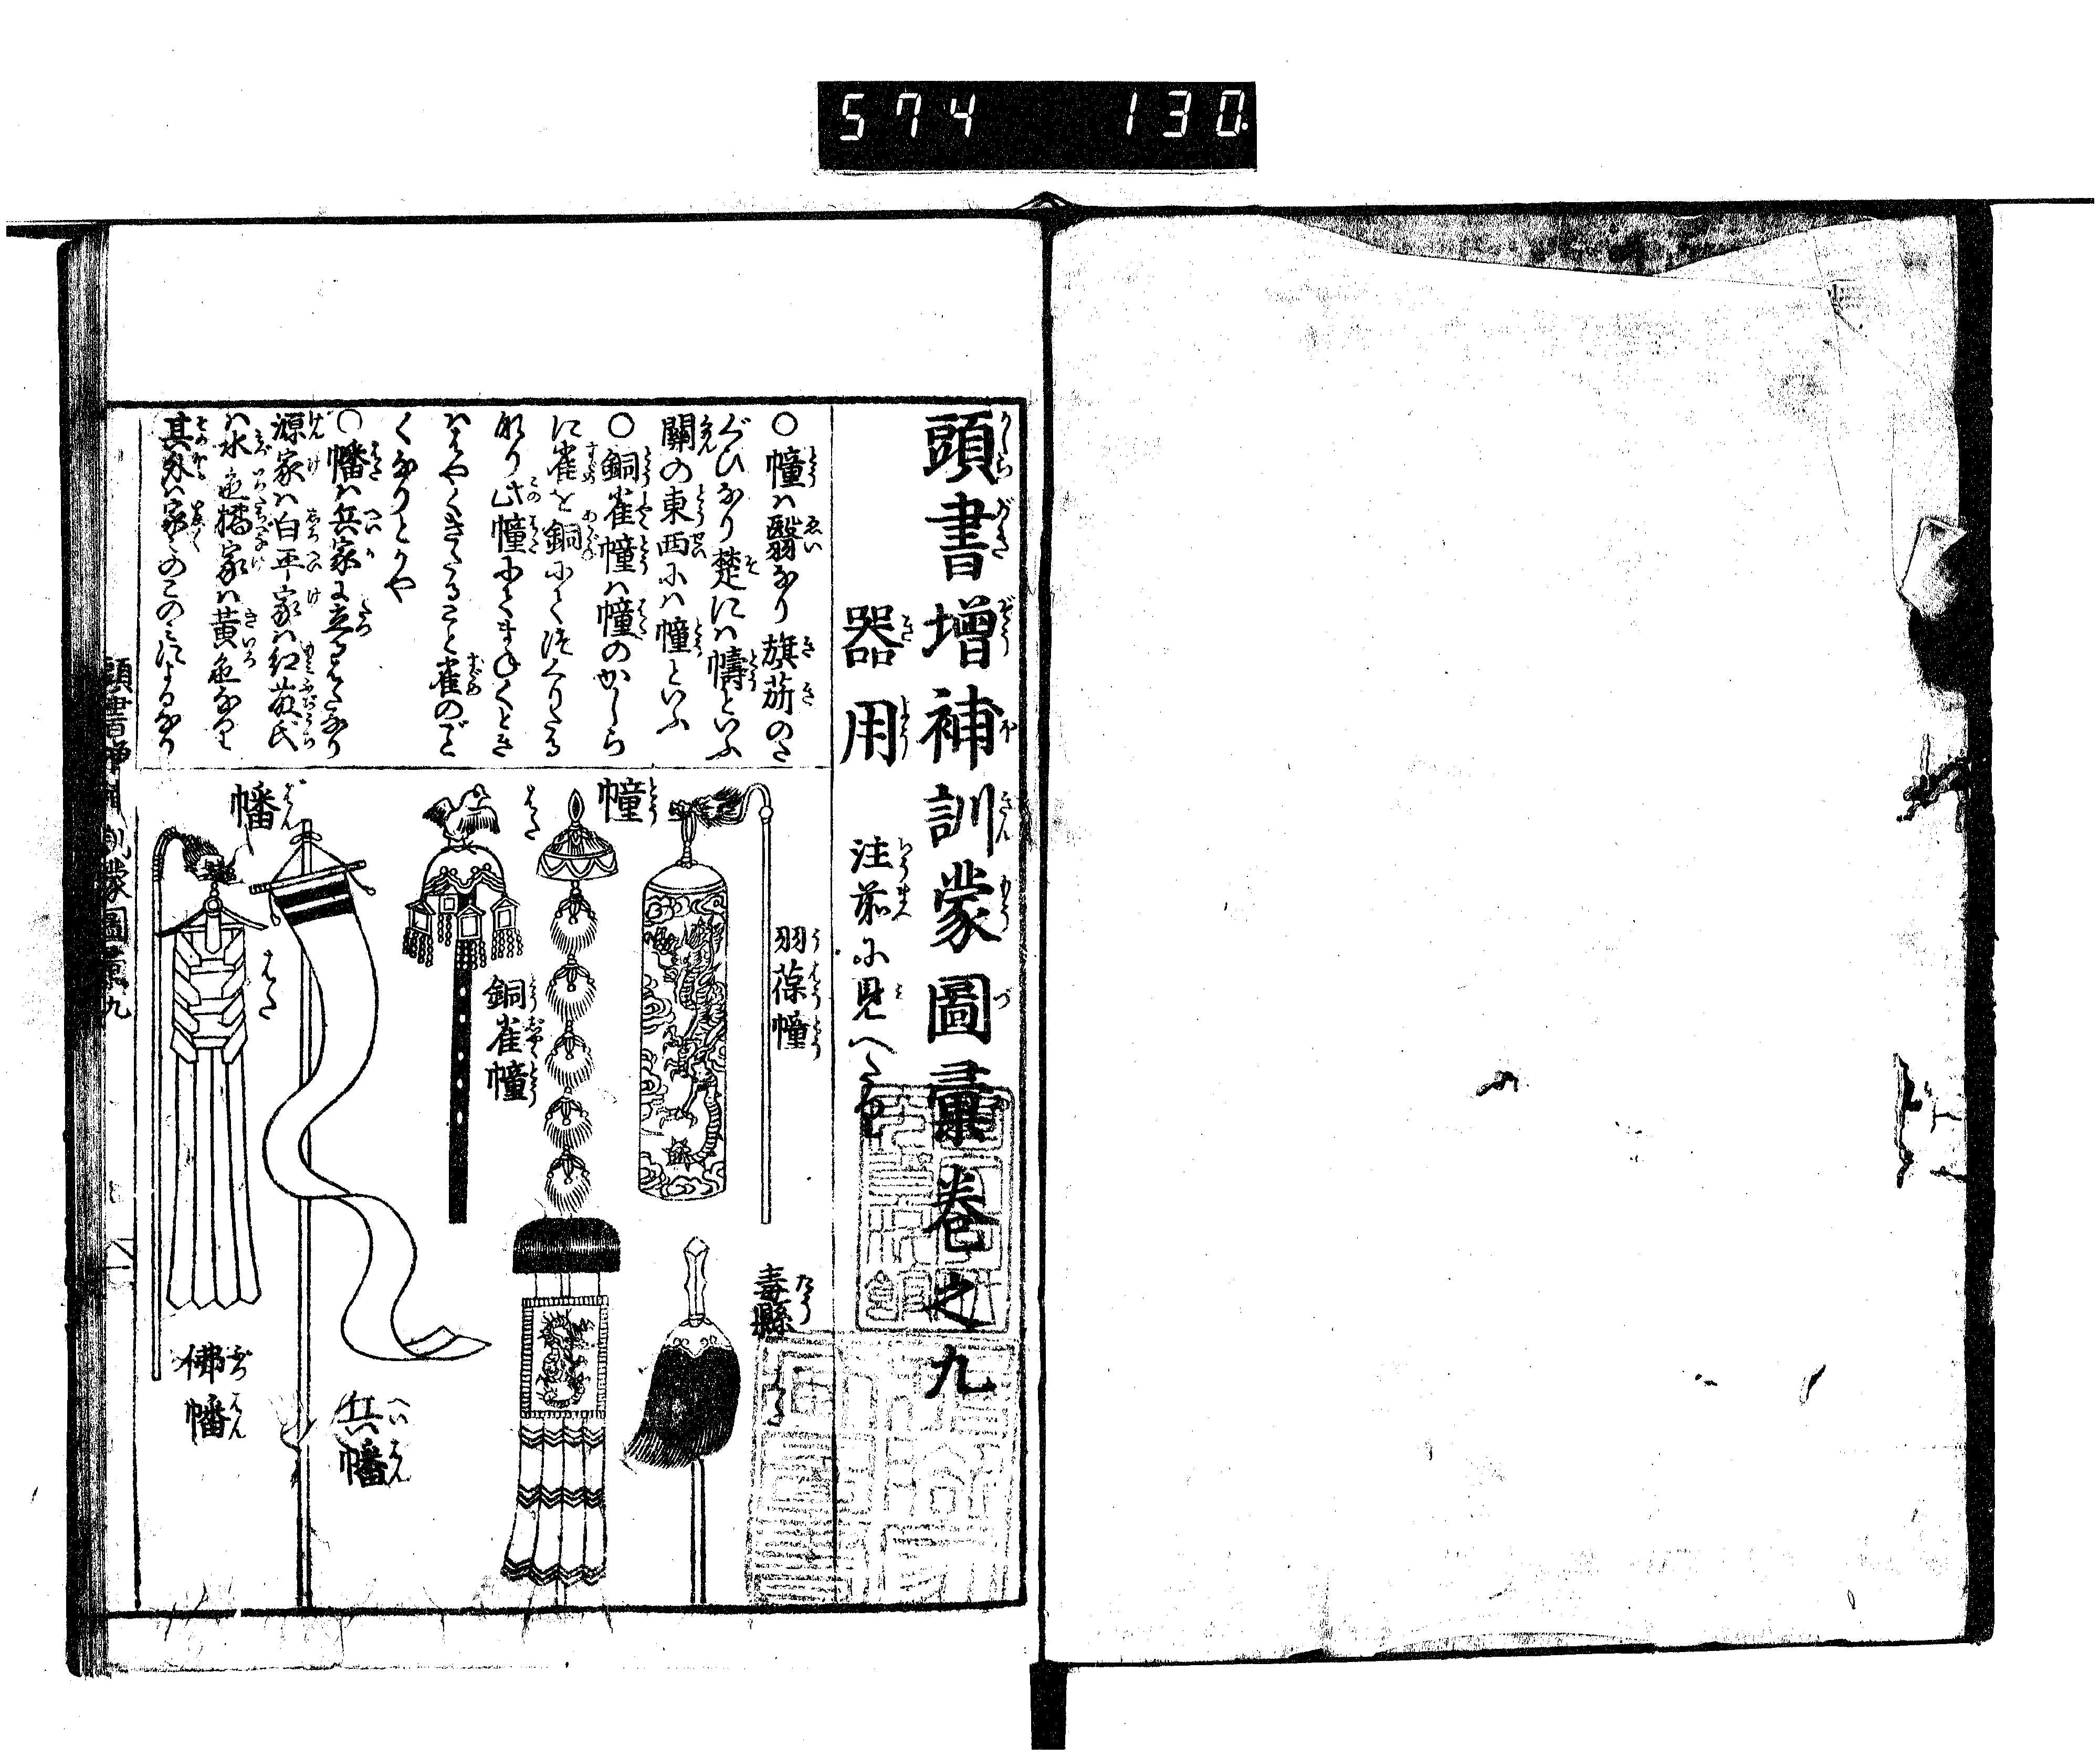 574 130.
頭書增補訓蒙圖彙卷之九
器用
注前に見へたり
〇幢ハ翳なり旗旂のた
ぐひなり楚にハ幬といふ
關の東西にハ幢といふ
〇銅雀幢ハ幢のかしら
に雀を銅にてつくりたる
なり此幢にてまねくとき
ハはやくきたること雀のごと
くなりとかや
〇幡ハ兵家に立るはたなり
源家ハ白平家ハ紅藤氏
ハ水色橘家ハ黄色なり
其外ハ家々のこのみによるなり
羽葆幢
幢
はた
銅雀幢
幡
はた
兵幡
佛幡
頭書增補訓蒙圖彙九